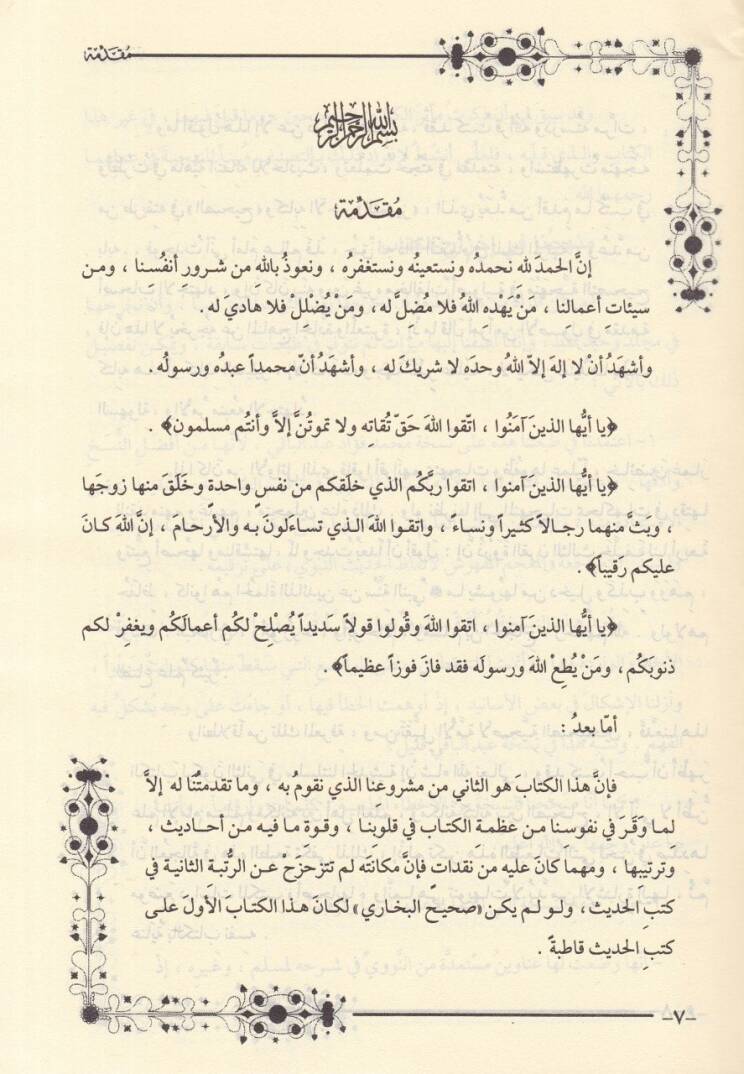 مُقَدِّمَة
بسم الله الرحمن الرحيم
مُقَدِّمَة
إنَّ الحمدَ لله نحمدُه ونستعينُه ونستغفرُه ، ونعوذُ باللهِ مِن شرورِ أنفُسِنا ، ومن
سيئاتِ أعمالِنا ، مَنْ يَهْدِه اللهُ فلا مُضِلَّ له ، ومَنْ يُضْلِلْ فلا هاديَ له .
وأشهَدُ أنْ لا إلهَ إلاّ اللهُ وحدَه لا شريكَ له ، وأشهَدُ أنّ محمداً عبدُه ورسولُه .
﴿يا أيُّها الذينَ آمَنُوا ، اتّقوا اللهَ حَقّ تُقاتِه ولا تموتُنَّ إلاَّ وأنتُم مسلمون﴾ .
﴿يا أيُّها الذين آمنوا ، اتقوا ربَّكُم الذي خلَقكم من نفسٍ واحدة وخَلَقَ منها زوجَها
، وبثَّ منهما رجالاً كثيراً ونساءً ، واتقوا اللهَ الذي تساءَلونَ به والأرحام ، إنَّ اللهَ كانَ
عليكم رَقيباً﴾ .
﴿يا أيُّها الذين آمنوا ، اتقوا اللهَ وقُولوا قولاً سَديداً يُصْلِحْ لكُم أعمالَكُم ويغفِرْ لكم
ذنوبَكُم ، ومَنْ يُطِعْ اللهَ ورسولَه فقد فازَ فوزاً عظيماً﴾ .
أمّا بعدُ :
فإنَّ هذا الكتابَ هو الثاني من مشروعنا الذي نقومُ به ، وما تقدمتُنا له إلاَّ
لما وَقَرَ في نفوسنا من عظمة الكتاب في قلوبنا ، وقوة ما فيه من أحاديث ،
وترتيبها ، ومهما كانَ عليه من نقدات فإنَّ مكانَته لم تتزحزَحْ عن الرُّتبة الثانية في
كتبِ الحديث ، ولو لم يكن «صحيحُ البخاري» لكانَ هذا الكتابَ الأولَ على
كتبِ الحديث قاطبةً .
-٧-